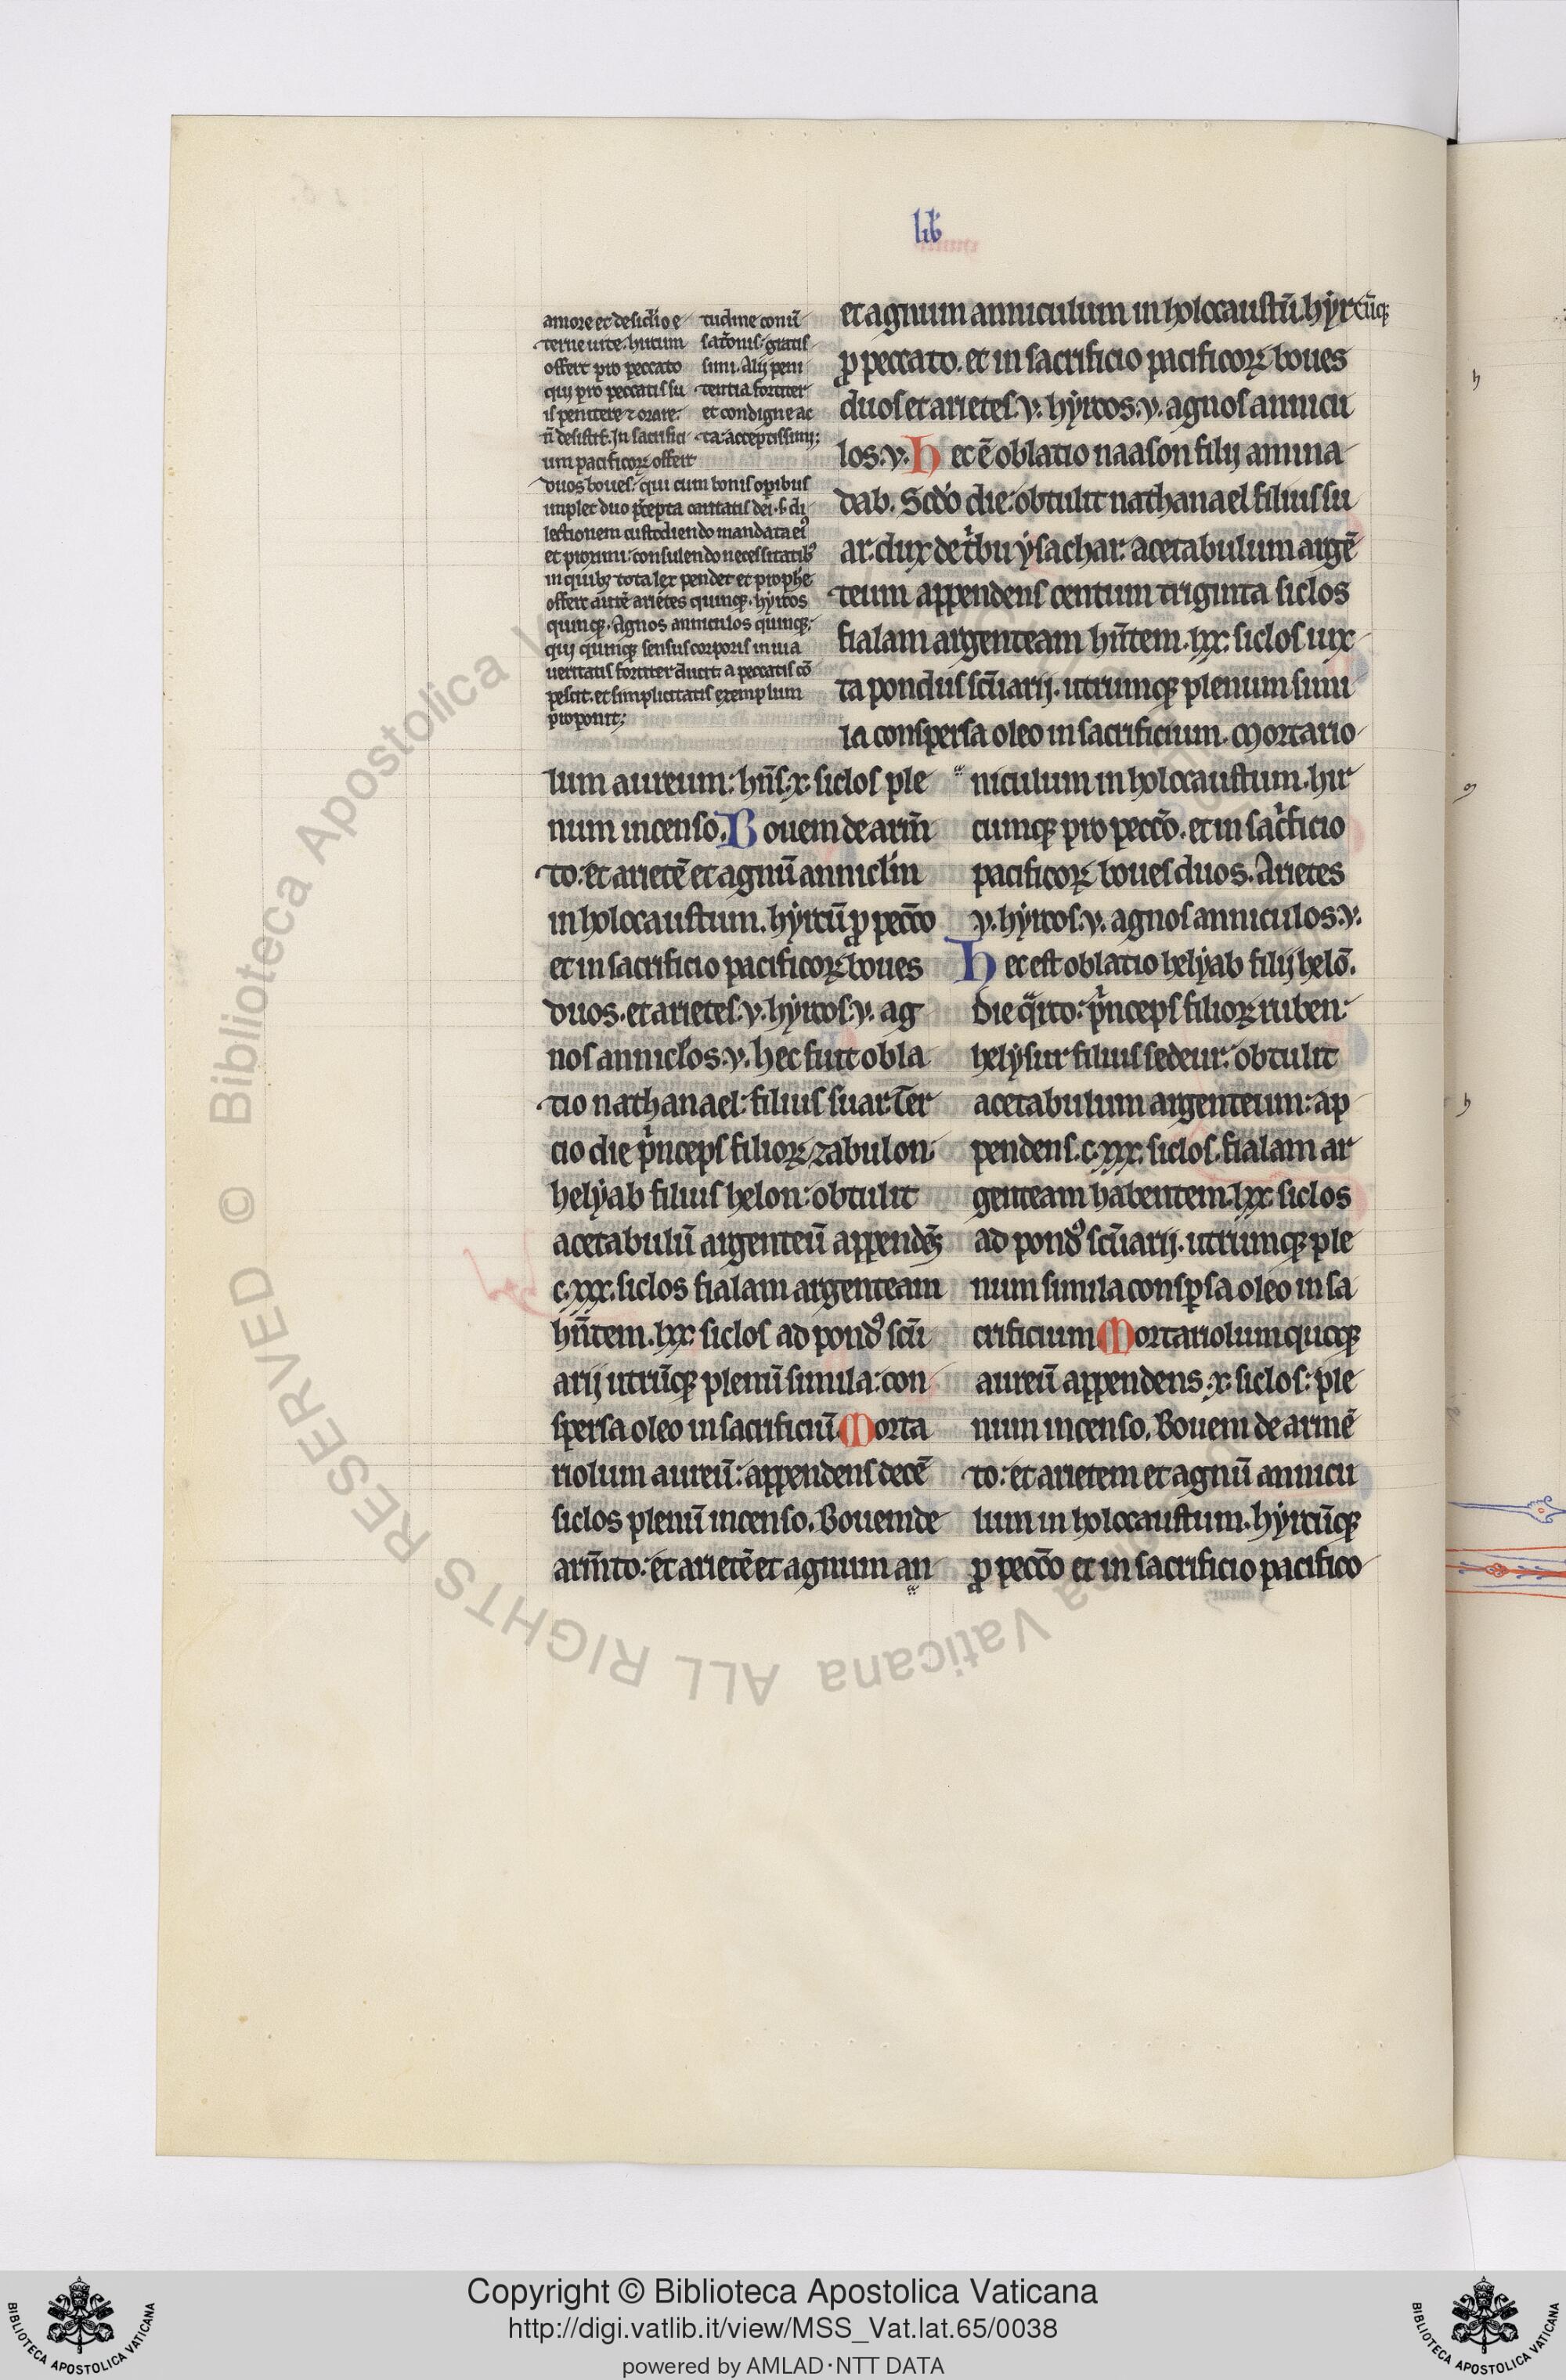 lib̃
amore et desiderio e
terne uite. hircum
offert pro peccato
qui pro peccatis su
is penitere ⁊ orare.
ñ desistit. In sacrifici
um pacificoꝝ offert
tudine conũ
sationis gratis
simi. Alij peni
tentia fortiter
et condigne ac
ta: acceptissimi;
duos boues. qui cum bonis oꝑibus
implet duo p̃cepta caritatis dei. s. di
lectionem custodiendo mandata eiꝰ
et proximi: consulendo necessitatibꝰ
in quibꝫ tota lex pendet et prophe
offert autẽ arietes quinqꝫ. hyrcos
quinqꝫ. Agnos anniculos quinqꝫ.
qui quinqꝫ sensus corporis in uia
ueritatis fortiter ducit. a peccatis cõ
pescit. et simplicitatis exemplum
proponit;
et agnum anniculum in holocaustũ. hyrcũqꝫ
ꝓ peccato. et in sacrificio pacificoꝝ boues
duos et arietes .v. hyrcos .v. agnos annicu
los .v. Hec ẽ oblatio naason filij amina
dab. Scđo die: obtulit nathanael filius su
ar. dux de tⁱbu ysachar. acetabulum argẽ
teum appendens centum triginta siclos
fialam argenteam hñtem .lxx. siclos iux
ta pondus scũarij. utrumqꝫ plenum simi
la conspersa oleo in sacrificium. Mortario
lum aureum: hñs .x. siclos ple
num incenso. Bouem de arm̃
to. et arietẽ et agnũ anniclm̃
in holocaustum. hyrcũ ꝓ pecc̃o
et in sacrificio pacificoꝝ boues
duos. et arietes .v. hyrcos .v. ag
nos annicl̃os .v. Hec fuit obla
tio nathanael: filius suar. Ter
cio die pⁱnceps filioꝝ zabulon:
helyab filius helon: obtulit
acetabulũ argenteũ appendẽs
c.xxx. siclos fialam argenteam
hñtem .lxx. siclos ad pondꝰ scũ
arij utrũqꝫ plenũ simila: con
spersa oleo in sacrificiũ. Morta
riolum aureũ: appendens decẽ
siclos plenũ incenso. Bouem de
arm̃to: et arietẽ et agnum an
niculum in holocaustum. hir
cumqꝫ pro pecc̃o. et in sac̃ficio
pacificoꝝ boues duos. Arietes
.v. hyrcos .v. agnos anniculos .v.
Hec est oblatio helyab filij helõ.
Die qᵃrto: pⁱnceps filioꝝ ruben:
helysur filius sedeur: obtulit
acetabulum argenteum: ap
pendens .c.xxx. siclos. fialam ar
genteam habentem .lxx. siclos
ad pondꝰ scũarij. utrumqꝫ ple
num simila conspsa oleo in sa
crificium Mortariolum quoqꝫ
aureũ appendens .x. siclos: ple
num incenso. Bouem de armẽ
to: et arietem et agnũ annicu
lum in holocaustum. hyrcũqꝫ
ꝓ pecc̃o et in sacrificio pacifico
© Biblioteca Apostolica Vaticana ALL RIGHTS RESERVED
Copyright © Biblioteca Apostolica Vaticana
http://digi.vatlib.it/view/MSS_Vat.lat.65/0038
powered by AMLAD·NTT DATA
BIBLIOTECA APOSTOLICA VATICANA
BIBLIOTECA APOSTOLICA VATICANA